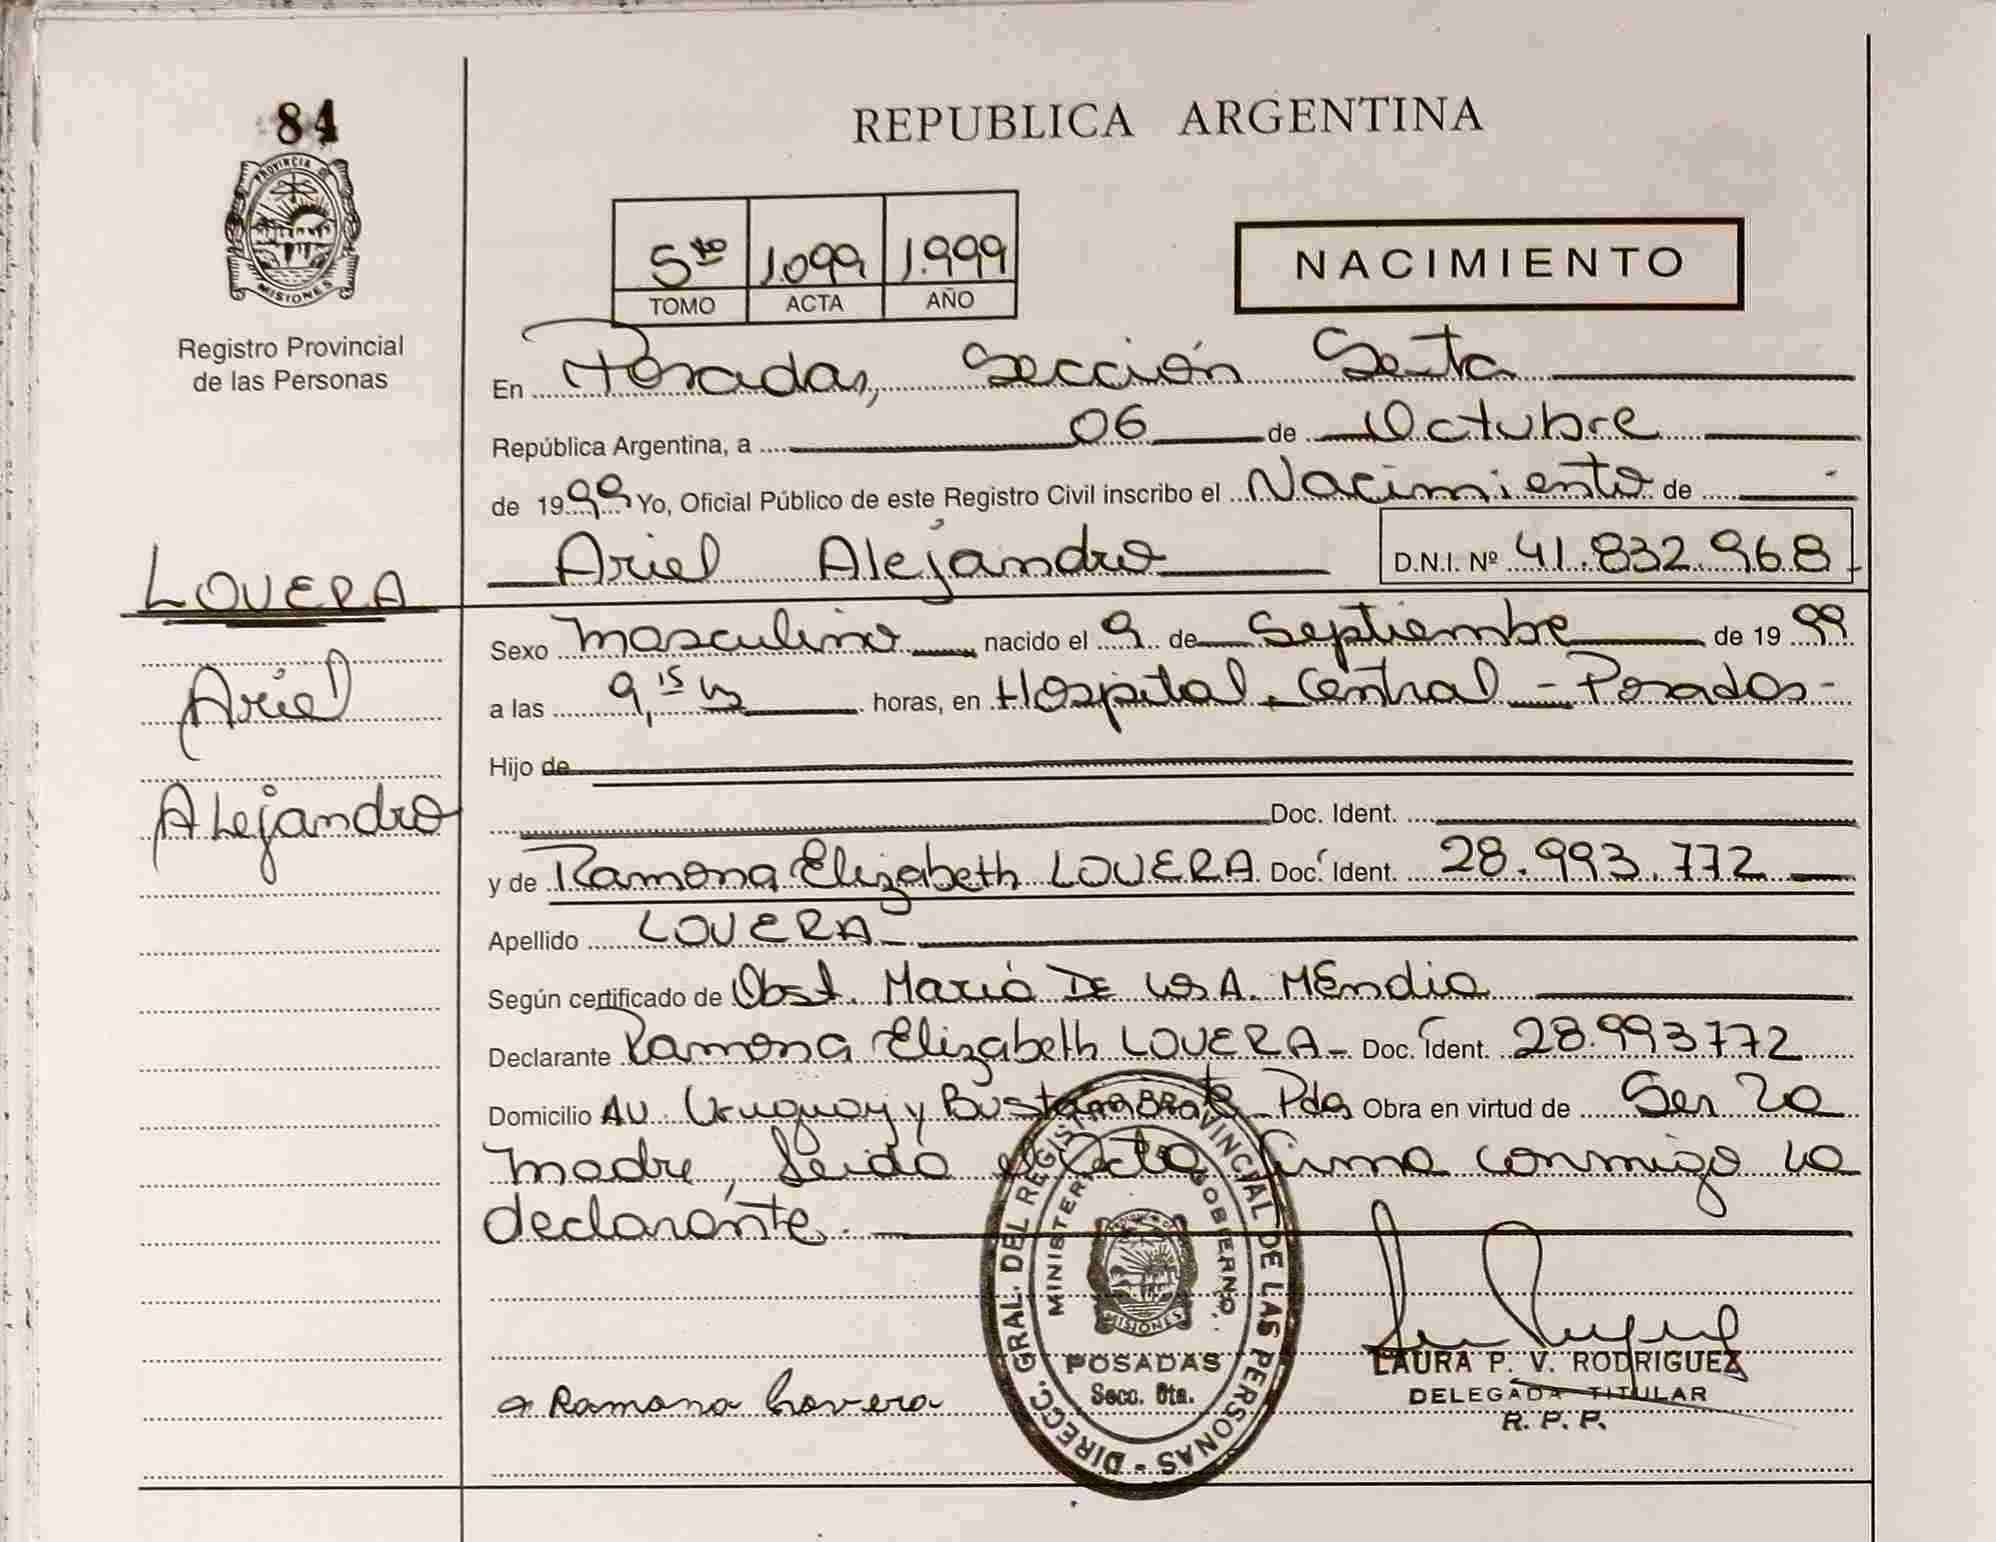 84
PROVINCIA DE
MISIONES
Registro Provincial
de las Personas
LOVERA
Ariel
Alejandro
REPUBLICA ARGENTINA
5to 1.099 1.999
TOMO ACTA AÑO
NACIMIENTO
En Posadas, Sección Sexta
República Argentina, a 06 de Octubre
de 1999 Yo, Oficial Público de este Registro Civil inscribo el Nacimiento de
Ariel Alejandro D.N.I. Nº 41.832.968
Sexo masculino nacido el 9 de Septiembre de 1999
a las 9,15 hs horas, en Hospital Central - Posadas -
Hijo de
Doc. Ident.
y de Ramona Elizabeth LOVERA Doc. Ident. 28.993.772
Apellido LOVERA
Según certificado de Obst. María DE los A. MEndia
Declarante Ramona Elizabeth LOVERA - Doc. Ident. 28.993772
Domicilio AV. Uruguay y Pdas Obra en virtud de Ser la
madre, Leida el Acta firma conmigo la
declarante.
DIRECC. GRAL. DEL REGISTRO PROVINCIAL DE LAS PERSONAS -
MINISTERIO GOBIERNO.
MISIONES
POSADAS
Secc. 6ta.
Ramona Lovera
LAURA P. V. RODRIGUEZ
DELEGADA TITULAR
R. P. P.